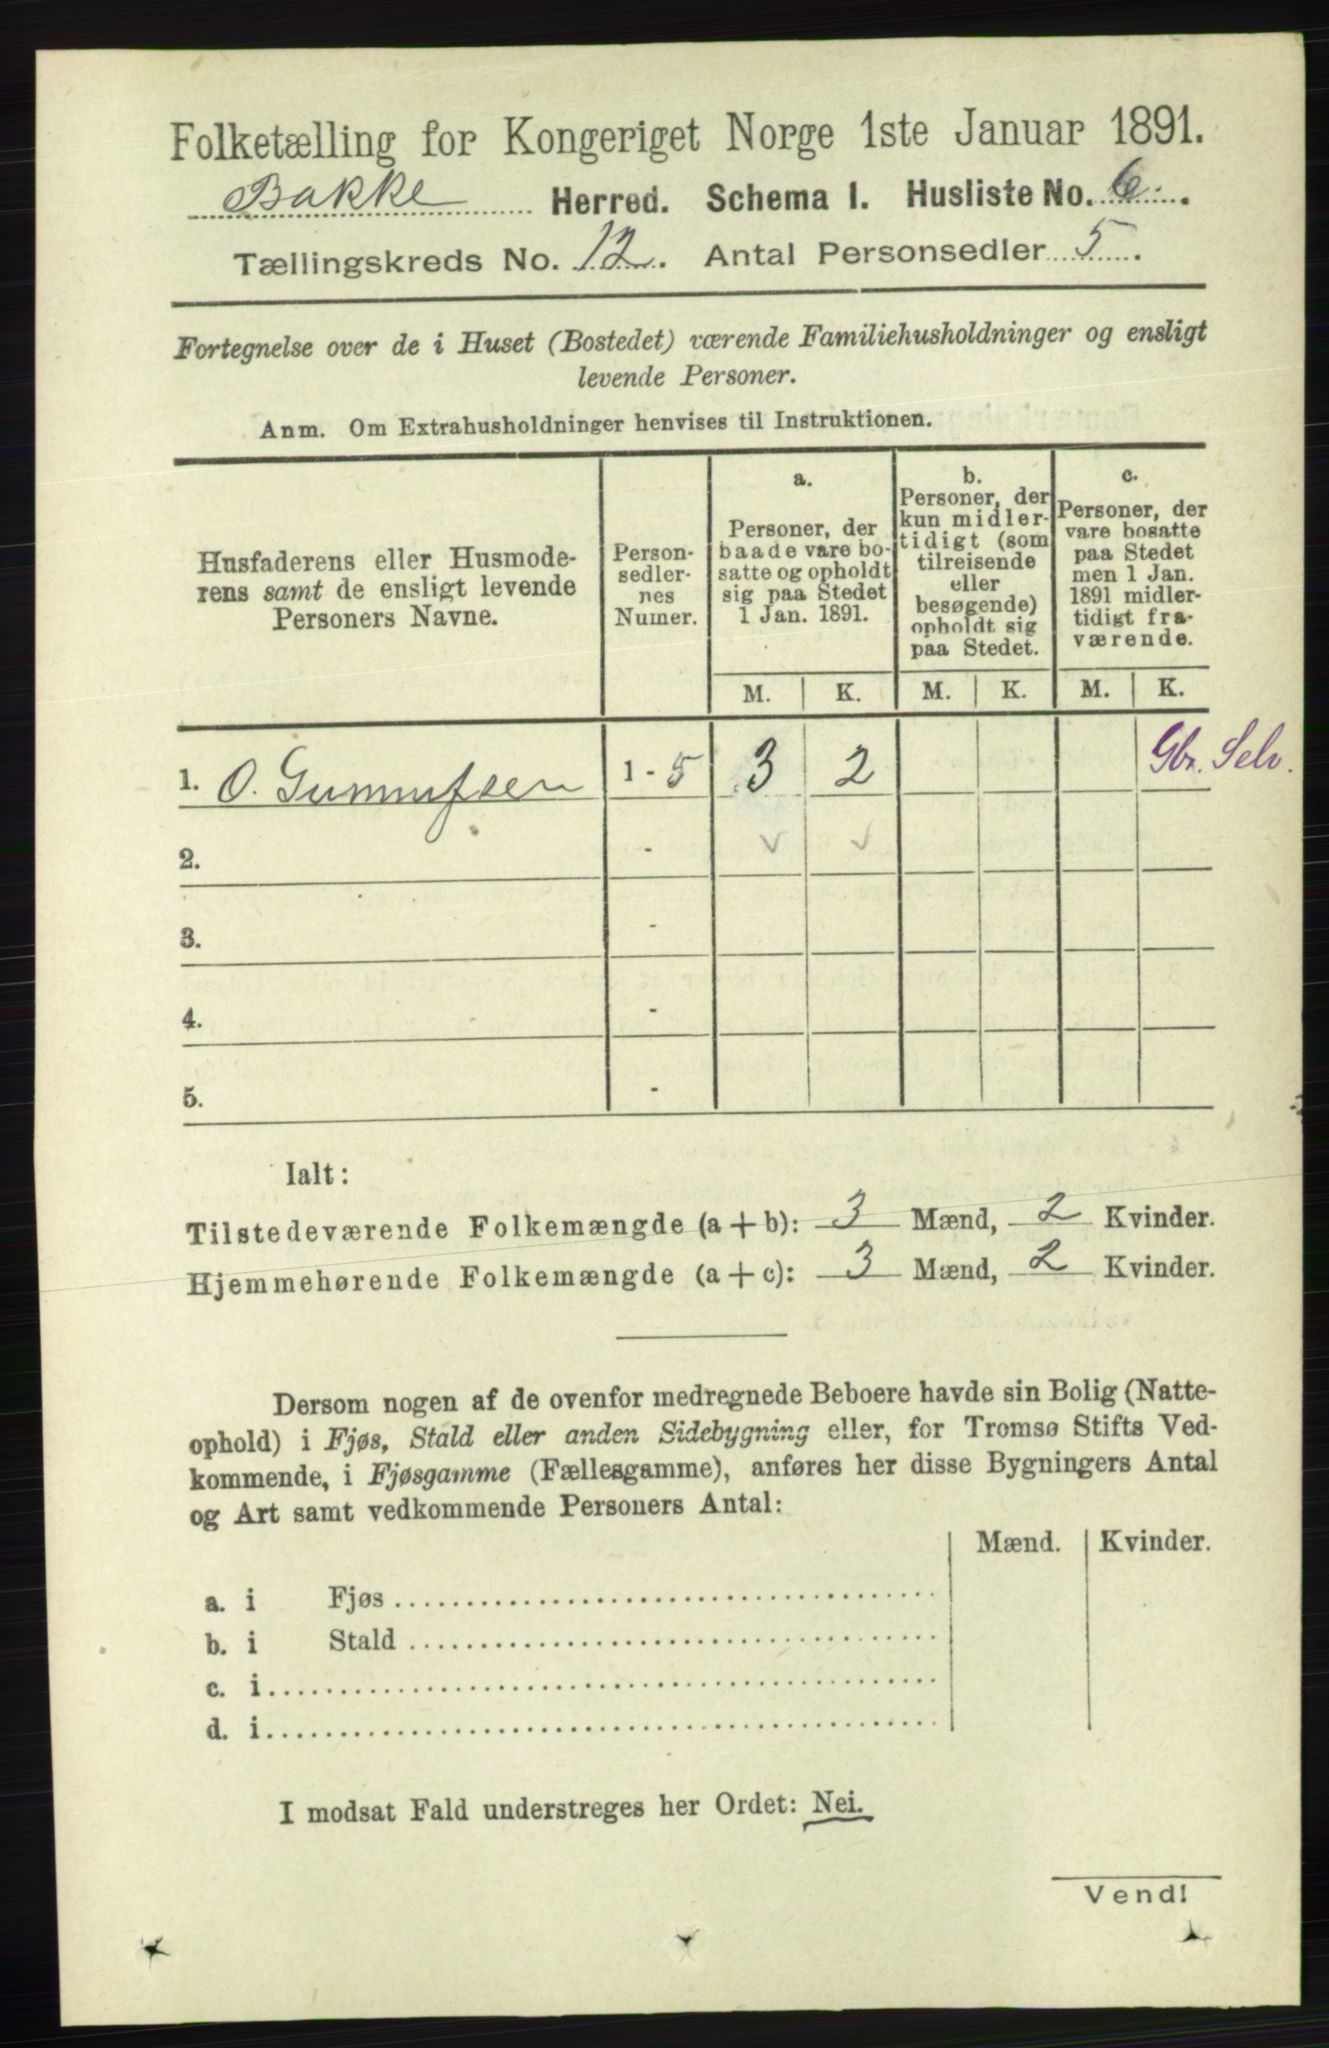 Folketælling for Kongeriget Norge 1ste Januar 1891.
Bakke Herred. Schema I. Husliste No. 6.
Tællingskreds No. 12. Antal Personsedler 5.
Fortegnelse over de i Huset (Bostedet) værende Familiehusholdninger og ensligt
levende Personer.
Anm. Om Extrahusholdninger henvises til Instruktionen.
Husfaderens eller Husmode-
rens samt de ensligt levende
Personers Navne.
Person-
sedler-
nes
Numer.
a.
Personer, der
baade vare bo-
satte og opholdt
sig paa Stedet
1 Jan. 1891.
b.
Personer, der
kun midler-
tidigt (som
tilreisende
eller
besøgende)
opholdt sig
paa Stedet.
c.
Personer, der
vare bosatte
paa Stedet
men 1 Jan.
1891 midler-
tidigt fra-
værende.
M. K. M. K. M. K.
1. O. Gunnufsen 1 - 5 3 2 Gbr. Selv.
2. - ✓ ✓
3. -
4. -
5. -
Ialt:
Tilstedeværende Folkemængde (a + b): 3 Mænd, 2 Kvinder.
Hjemmehørende Folkemængde (a + c): 3 Mænd, 2 Kvinder.
Dersom nogen af de ovenfor medregnede Beboere havde sin Bolig (Natte-
ophold) i Fjøs, Stald eller anden Sidebygning eller, for Tromsø Stifts Ved-
kommende, i Fjøsgamme (Fællesgamme), anføres her disse Bygningers Antal
og Art samt vedkommende Personers Antal:
Mænd. Kvinder.
a. i Fjøs
b. i Stald
c. i
d. i
I modsat Fald understreges her Ordet: Nei.
Vend!